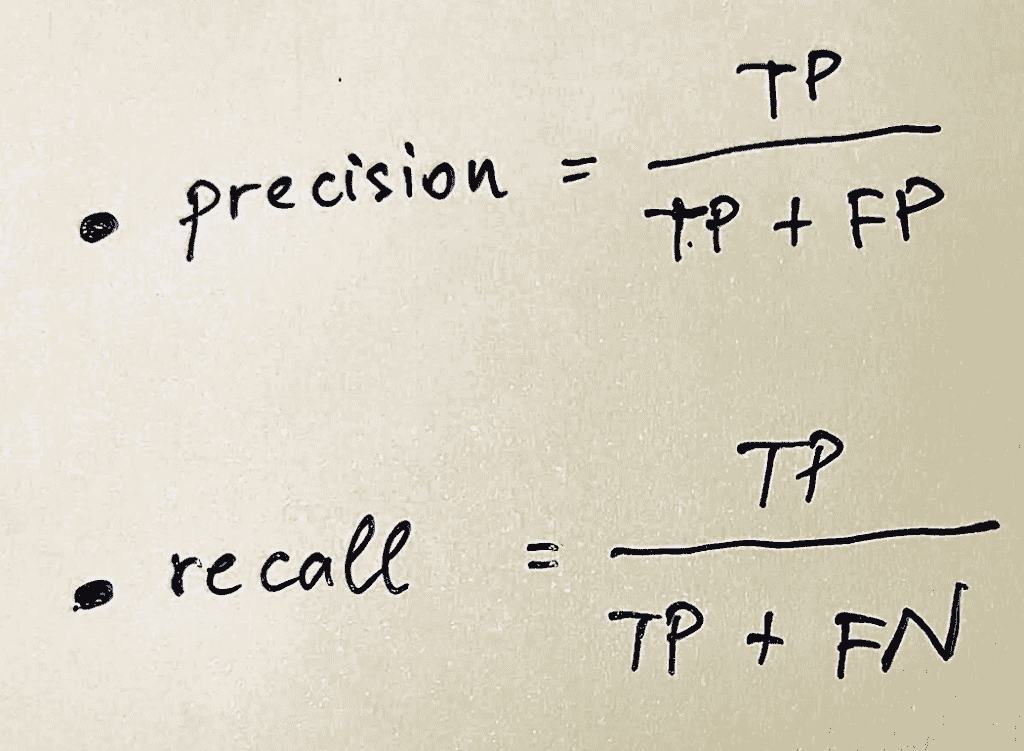 • precision = TP / TP + FP
• recall = TP / TP + FN